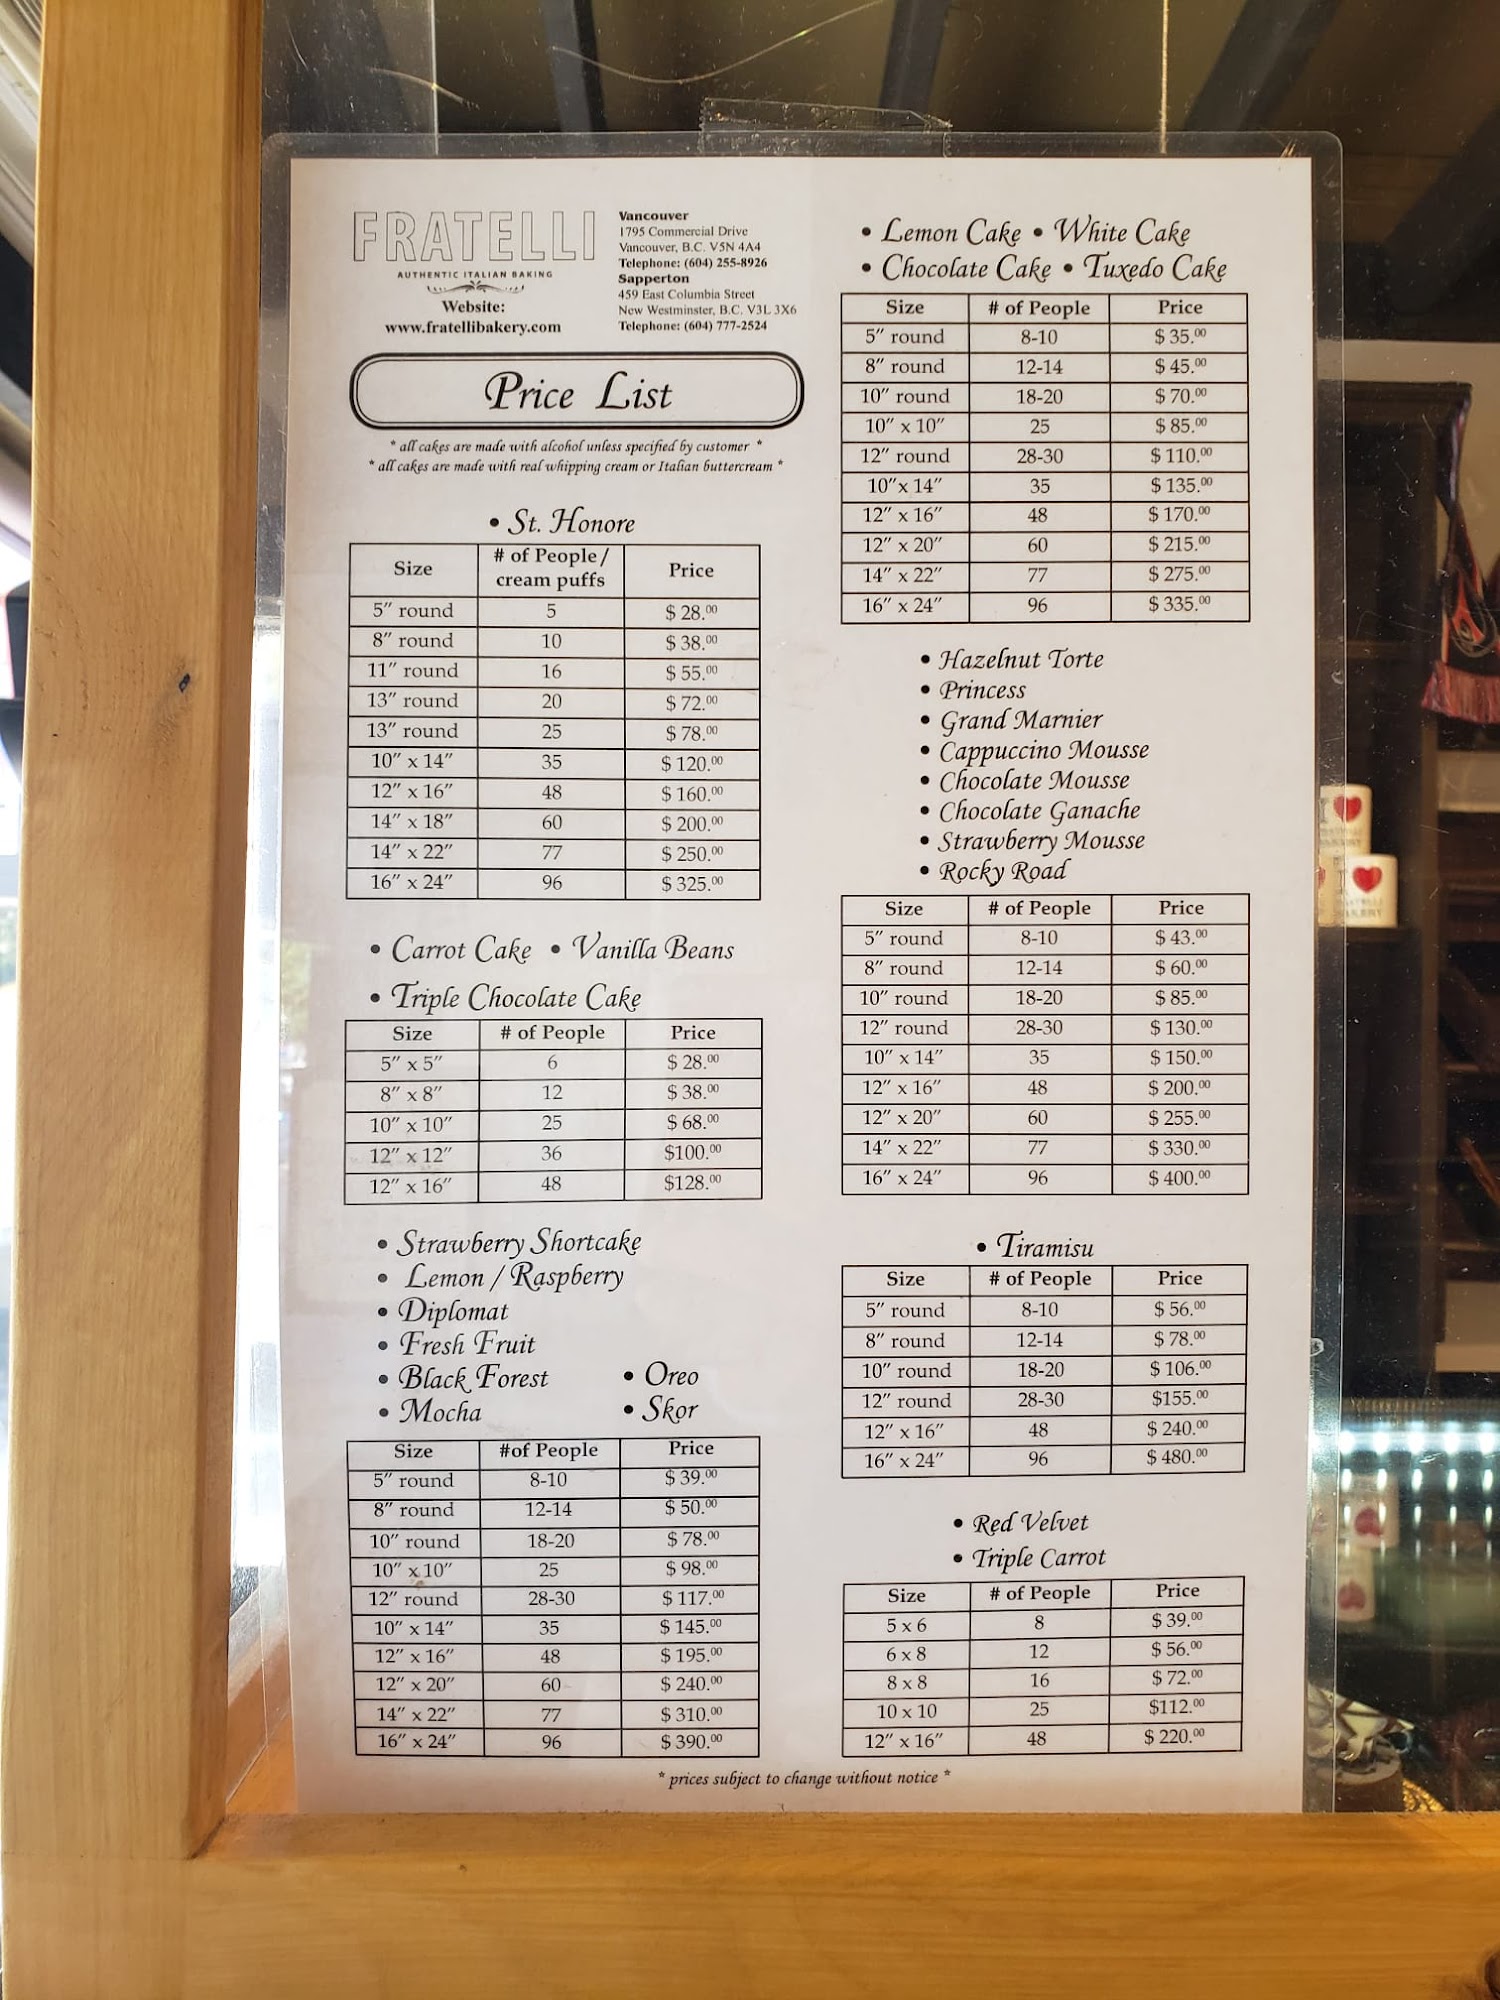 FRATELLI
AUTHENTIC ITALIAN BAKING
Website:
www.fratellibakery.com
Vancouver
1795 Commercial Drive
Vancouver, B.C. V5N 4A4
Telephone: (604) 255-8926
Sapperton
459 East Columbia Street
New Westminster, B.C. V3L 3X6
Telephone: (604) 777-2524
Price List
* all cakes are made with alcohol unless specified by customer *
* all cakes are made with real whipping cream or Italian buttercream *
• St. Honore
Size # of People / cream puffs Price
5" round 5 $ 28.00
8" round 10 $ 38.00
11" round 16 $ 55.00
13" round 20 $ 72.00
13" round 25 $ 78.00
10" x 14" 35 $ 120.00
12" x 16" 48 $ 160.00
14" x 18" 60 $ 200.00
14" x 22" 77 $ 250.00
16" x 24" 96 $ 325.00
• Carrot Cake • Vanilla Beans
• Triple Chocolate Cake
Size # of People Price
5" x 5" 6 $ 28.00
8" x 8" 12 $ 38.00
10" x 10" 25 $ 68.00
12" x 12" 36 $100.00
12" x 16" 48 $128.00
• Strawberry Shortcake
• Lemon / Raspberry
• Diplomat
• Fresh Fruit
• Black Forest • Oreo
• Mocha • Skor
Size #of People Price
5" round 8-10 $ 39.00
8" round 12-14 $ 50.00
10" round 18-20 $ 78.00
10" x 10" 25 $ 98.00
12" round 28-30 $ 117.00
10" x 14" 35 $ 145.00
12" x 16" 48 $ 195.00
12" x 20" 60 $ 240.00
14" x 22" 77 $ 310.00
16" x 24" 96 $ 390.00
• Lemon Cake • White Cake
• Chocolate Cake • Tuxedo Cake
Size # of People Price
5" round 8-10 $ 35.00
8" round 12-14 $ 45.00
10" round 18-20 $ 70.00
10" x 10" 25 $ 85.00
12" round 28-30 $ 110.00
10"x 14" 35 $ 135.00
12" x 16" 48 $ 170.00
12" x 20" 60 $ 215.00
14" x 22" 77 $ 275.00
16" x 24" 96 $ 335.00
• Hazelnut Torte
• Princess
• Grand Marnier
• Cappuccino Mousse
• Chocolate Mousse
• Chocolate Ganache
• Strawberry Mousse
• Rocky Road
Size # of People Price
5" round 8-10 $ 43.00
8" round 12-14 $ 60.00
10" round 18-20 $ 85.00
12" round 28-30 $ 130.00
10" x 14" 35 $ 150.00
12" x 16" 48 $ 200.00
12" x 20" 60 $ 255.00
14" x 22" 77 $ 330.00
16" x 24" 96 $ 400.00
• Tiramisu
Size # of People Price
5" round 8-10 $ 56.00
8" round 12-14 $ 78.00
10" round 18-20 $ 106.00
12" round 28-30 $155.00
12" x 16" 48 $ 240.00
16" x 24" 96 $ 480.00
• Red Velvet
• Triple Carrot
Size # of People Price
5 x 6 8 $ 39.00
6 x 8 12 $ 56.00
8 x 8 16 $ 72.00
10 x 10 25 $112.00
12" x 16" 48 $ 220.00
* prices subject to change without notice *